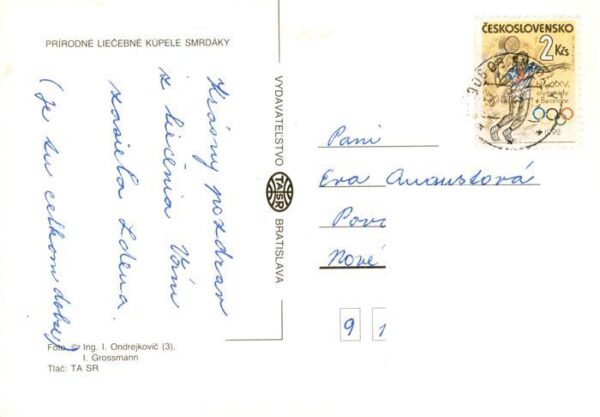 PRÍRODNÉ LIEČEBNÉ KÚPELE SMRDÁKY
Krásny pozdrav
z liečenia Vám
zasiela Zdena.
(Je tu celkom dobre)
Foto: Ing. I. Ondrejkovič (3).
I. Grossmann
Tlač: TA SR
VYDAVATEĽSTVO TASR BRATISLAVA
ČESKOSLOVENSKO
2 Kčs
1992
Pani
Eva Augustová
Pov
Nové
9 1